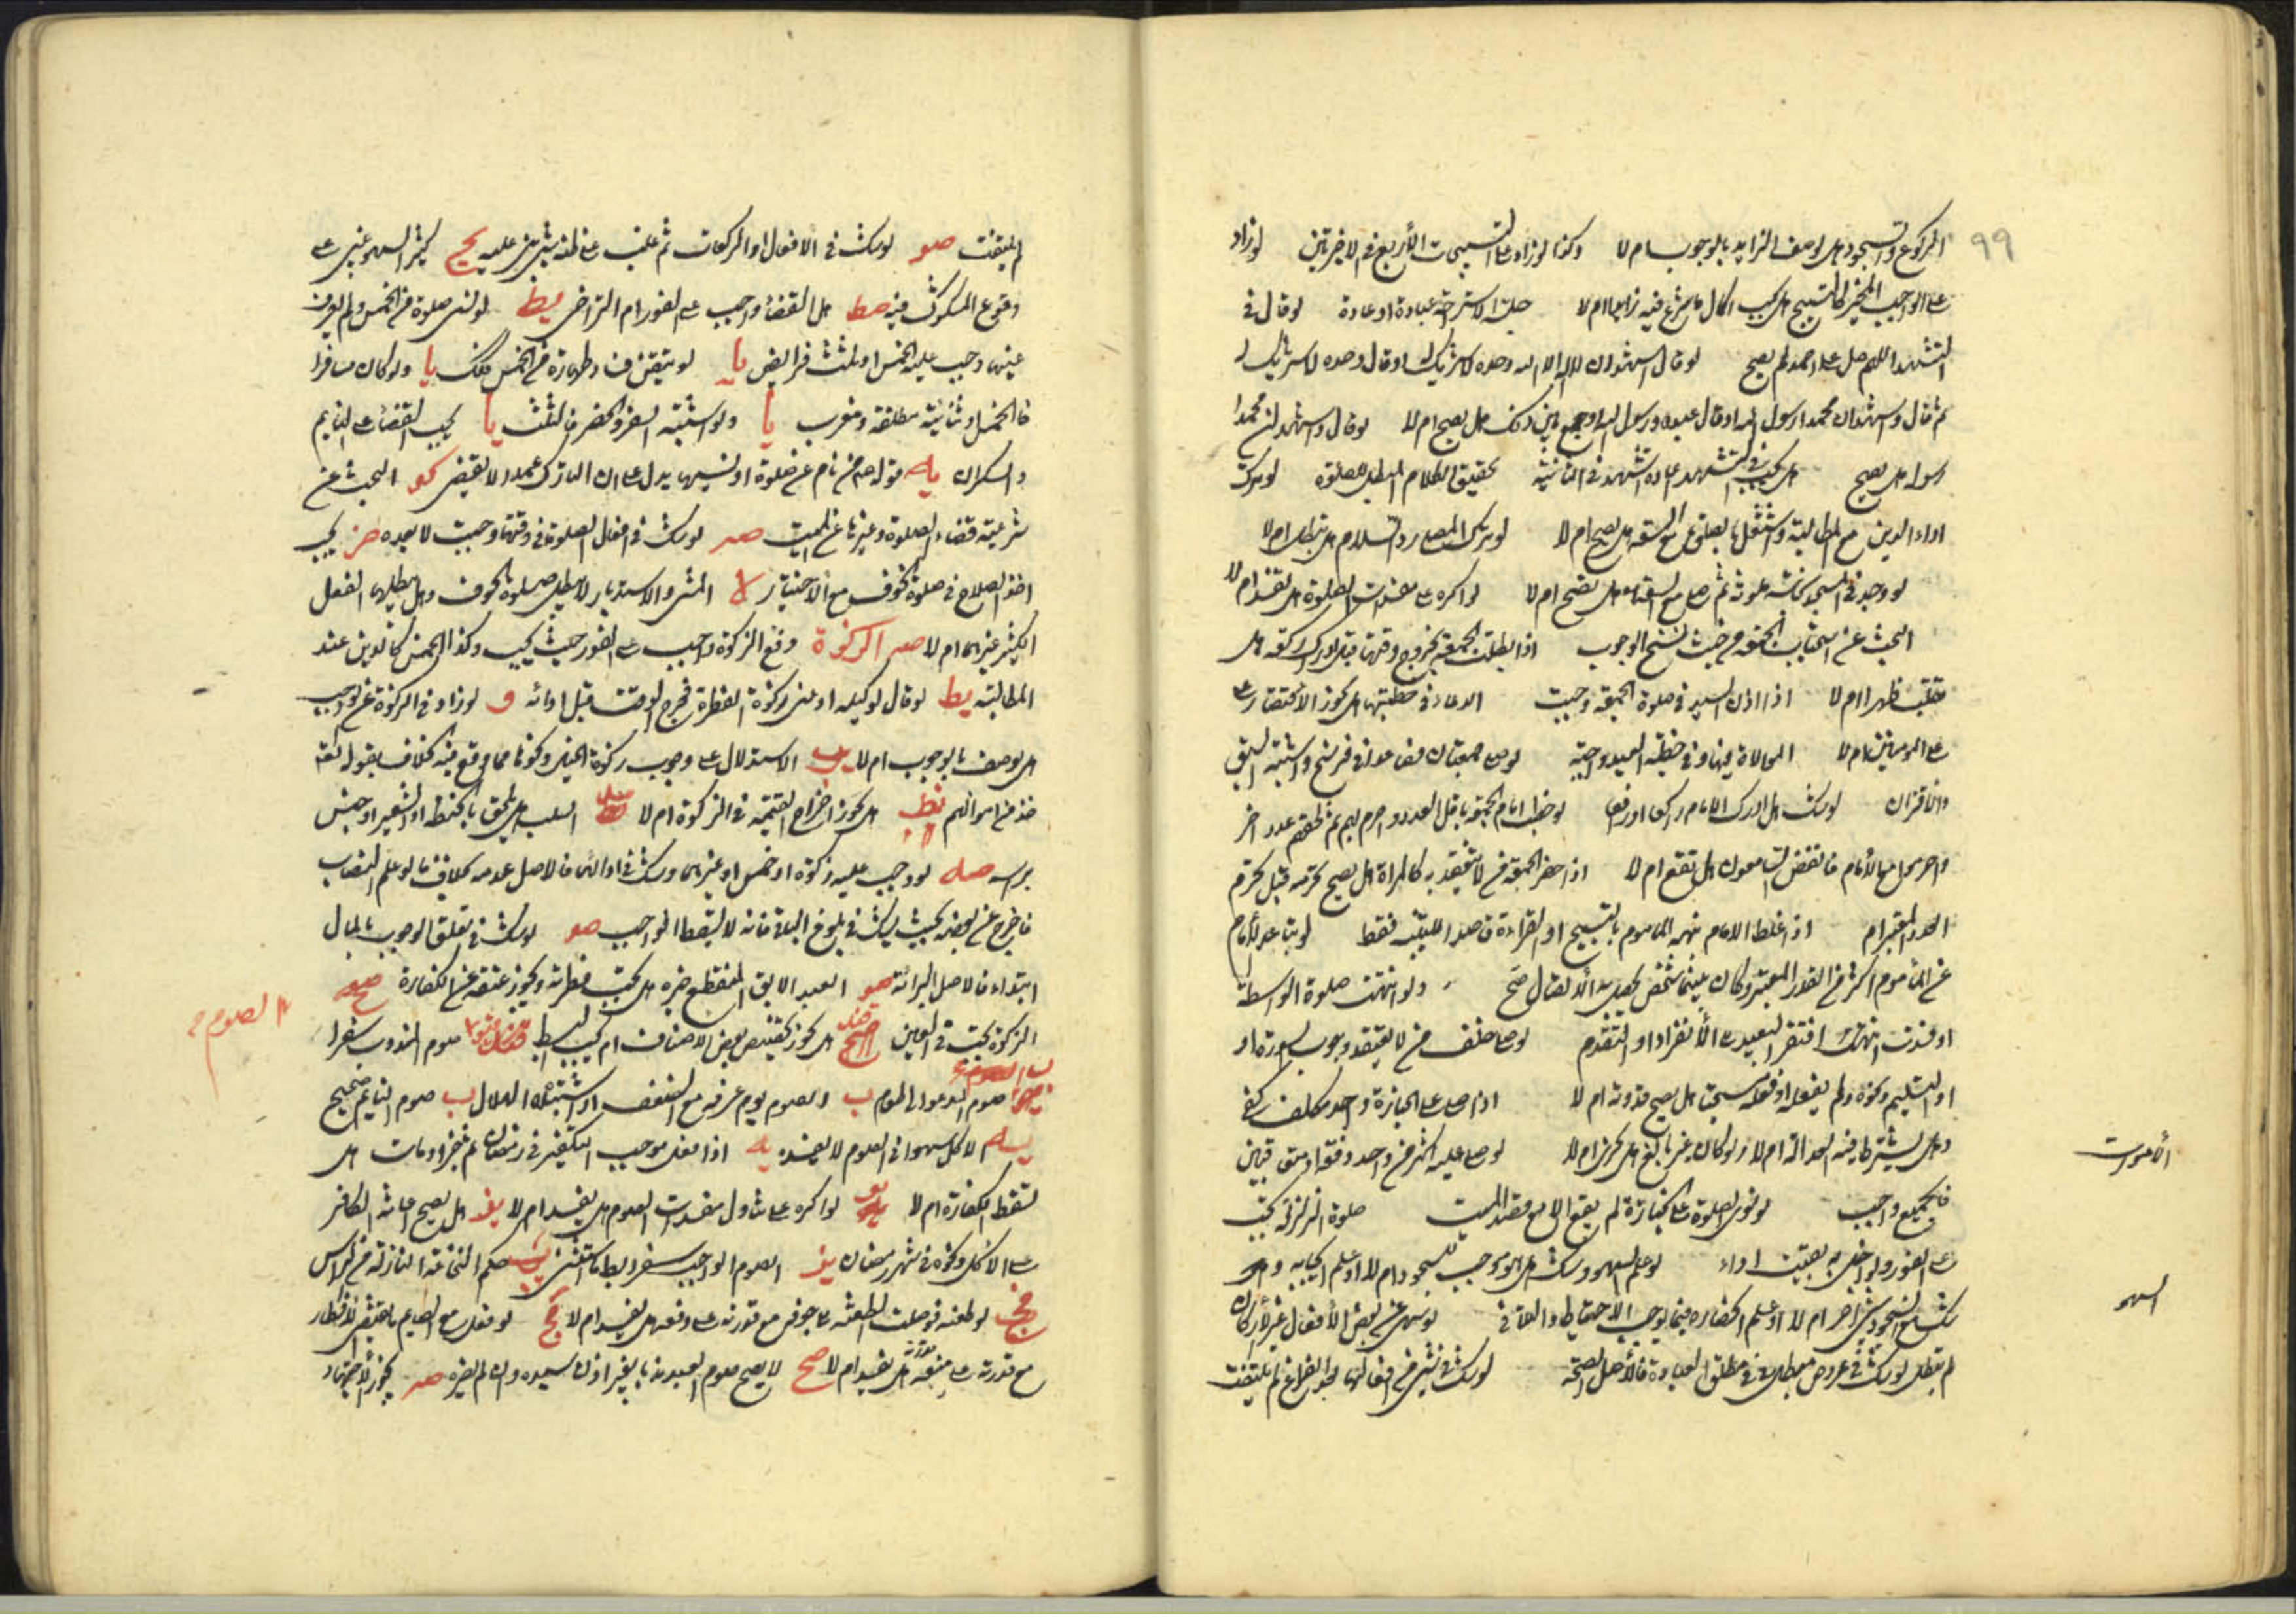 ٩٩
الركوع والسجود هل يوصف الزايد بالوجوب ام لا وكذا لو زاد على التسبيحات الأربع في الاخيرتين لو زاد
على الواجب المخير كالتسبيح هل يجب اكمال ما شرع فيه زايدا ام لا جلسة الاستراحة عبادة او عادة لو قال في
التشهد اللهم صل على احمد لم يصح لو قال اشهد ان لا اله الا الله وحده لا شريك له او قال وحده لا شريك له
ثم قال واشهد ان محمدا رسول الله او قال عبده ورسول الله او جمع بين ذلك هل يصح ام لا لو قال واشهد ان محمدا
رسوله هل يصح هل يجب في التشهد اعادة اشهد في الثانية تحقيق الكلام المبطل للصلوة لو ترك
اداء الدين مع المطالبة واشتغل بالصلوة مع السعة هل يصح ام لا لو ترك المصلي رد السلام هل تبطل ام لا
لو وجد في المسجد نجاسة ملوثة ثم صلى مع السعة هل تصح ام لا لو اكره على مفسدات الصلوة هل تفسد ام لا
البحث عن استحباب الجمعة من حيث نسخ الوجوب اذا بطلت الجمعة بخروج وقتها قبل ادراك ركعة هل
تنقلب ظهرا ام لا اذا اذن السيد في صلوة الجمعة وجبت الدعاء في خطبتها هل يجوز الاقتصار على
على المؤمنين ام لا الموالاة فيها وفي خطبة العيد واجبة لو صلى جمعتان فصاعدا في فرسخ واشتبه السبق
والاقتران لو شك هل ادرك الامام راكعا او رافعا لو خطب امام الجمعة باقل العدد واحرم بهم ثم لحقهم عدد اخر
واحرموا مع الامام فانفض السامعون هل تقع ام لا اذا حضر الجمعة من لا تنعقد به كالمراة هل يصح تحرمه قبل تحرم
العدد المعتبر ام اذا غلط الامام نبهه الماموم بالتسبيح او القراءة قاصدا للتنبيه فقط لو تباعد الامام
عن الماموم اكثر من القدر المعتبر وكان بينهما شخص يحصل به الاتصال صح ولو انتهت صلوة الواسطة
او فسدت انتهت افتقر البعيد الى الانفراد او التقدم لو صلى خلف من لا يعتقد وجوب السورة او
او التسليم ونحوه ولم يفعله او فعله مستحبا هل يصح قدوته ام لا اذا صلى على الجنازة واحد مكلف كفى
وهل يشترط فيه العدالة ام لا ولو كان غير بالغ هل تجزي ام لا لو صلى عليه اكثر من واحد دفعة او متعاقبين
فالجميع واجب لو نوى الصلوة على الجنازة لم يقع الا مع قصد الميت صلوة الزلزلة تجب
على الفور ولو اخل به بقيت اداء لو علم السهو وشك هل هو موجب للسجود ام لا او علم ايجابه وهل
لم تبطل لو شك في عروض مبطل في مطلق العبادة فالاصل الصحة لو شك في شيء من افعالها بعد الفراغ لم يلتفت
الأموات
السهو
لم يلتفت صو لو شك في الافعال او الركعات ثم غلب على ظنه شيء بنى عليه يح كثير السهو يبني على
وقوع المشكوك فيه صط هل القضاء واجب على الفور ام التراخي يط لو نسي صلوة من الخمس ولم يعرف
عينها وجب عليه الخمس او ثلث فرايض يا لو تيقن فساد طهارة من الخمس فكذلك يا ولو كان مسافرا
فالخمس او ثنائية مطلقة ومغرب يا ولو اشتبه السفر والحضر فالثلث يا يجب القضاء على النايم
والسكران يه قوله من نام عن صلوة او نسيها يدل على ان التارك عمدا لا يقضي كو البحث عن
شرعية قضاء الصلوة وغيرها عن الميت صر لو شك في افعال الصلوة في وقتها وجبت لا بعده يجب
اخذ السلاح في صلوة الخوف مع الاختيار لا المشي والاستدبار لا يبطل صلوة الخوف وهل يبطلها الفعل
الكثير غيرهما ام لا الزكوة دفع الزكوة واجب على الفور حيث يجب وكذا الخمس كالدين عند
المطالبة يط لو قال لوكيله اد عني زكوة الفطرة فخرج الوقت قبل ادائه و لو زاد في الزكوة عن الواجب
هل يوصف بالوجوب ام لا الاستدلال على وجوب زكوة الخيل ونحوها مما وقع فيه الخلاف بقوله تعالى
خذ من اموالهم هل يجوز اخراج القيمة في الزكوة ام لا السلت هل يلحق بالحنطة او الشعير او جنس
براسه صه لو وجب عليه زكوة او خمس او غيرها وشك في ادائها فالاصل عدمه بخلاف ما لو علم النصاب
فاخرج عن بعضه بحيث يشك في بلوغ الباقي فانه لا يسقط الواجب صو لو شك في تعلق الوجوب بالمال
ابتداء فالاصل البرائة صو العبد الابق المنقطع خبره هل تجب فطرته ويجوز عتقه عن الكفارة
الزكوة تجب في العين هل يجوز تخصيص بعض الاصناف ام يجب البسط صوم المندوب سفرا
صوم المدعو الى طعام ب والصوم يوم عرفة مع الضعف او اشتباه الهلال ب صوم النايم صحيح
الاكل سهوا في الصوم لا يفسده يه اذا فعل موجب التكفير في رمضان ثم جن او مات هل
تسقط الكفارة ام لا لو اكره على تناول مفسدات الصوم هل يفسد ام لا يف هل يصح اعانة الكافر
على الاكل ونحوه في شهر رمضان يف الصوم الواجب سفرا يبطل الا ما استثني حكم النخامة النازلة من الراس
لو طعنه فوصلت الطعنة الى جوفه مع قدرته على دفعه هل يفسد ام لا لو فعل مع الصايم ما يقتضي الافطار
مع قدرته على منعه هل يفسد ام لا صح لا يصح صوم العبد ندبا بغير اذن سيده وان لم يضره صر يجوز الاجتهاد
الصوم